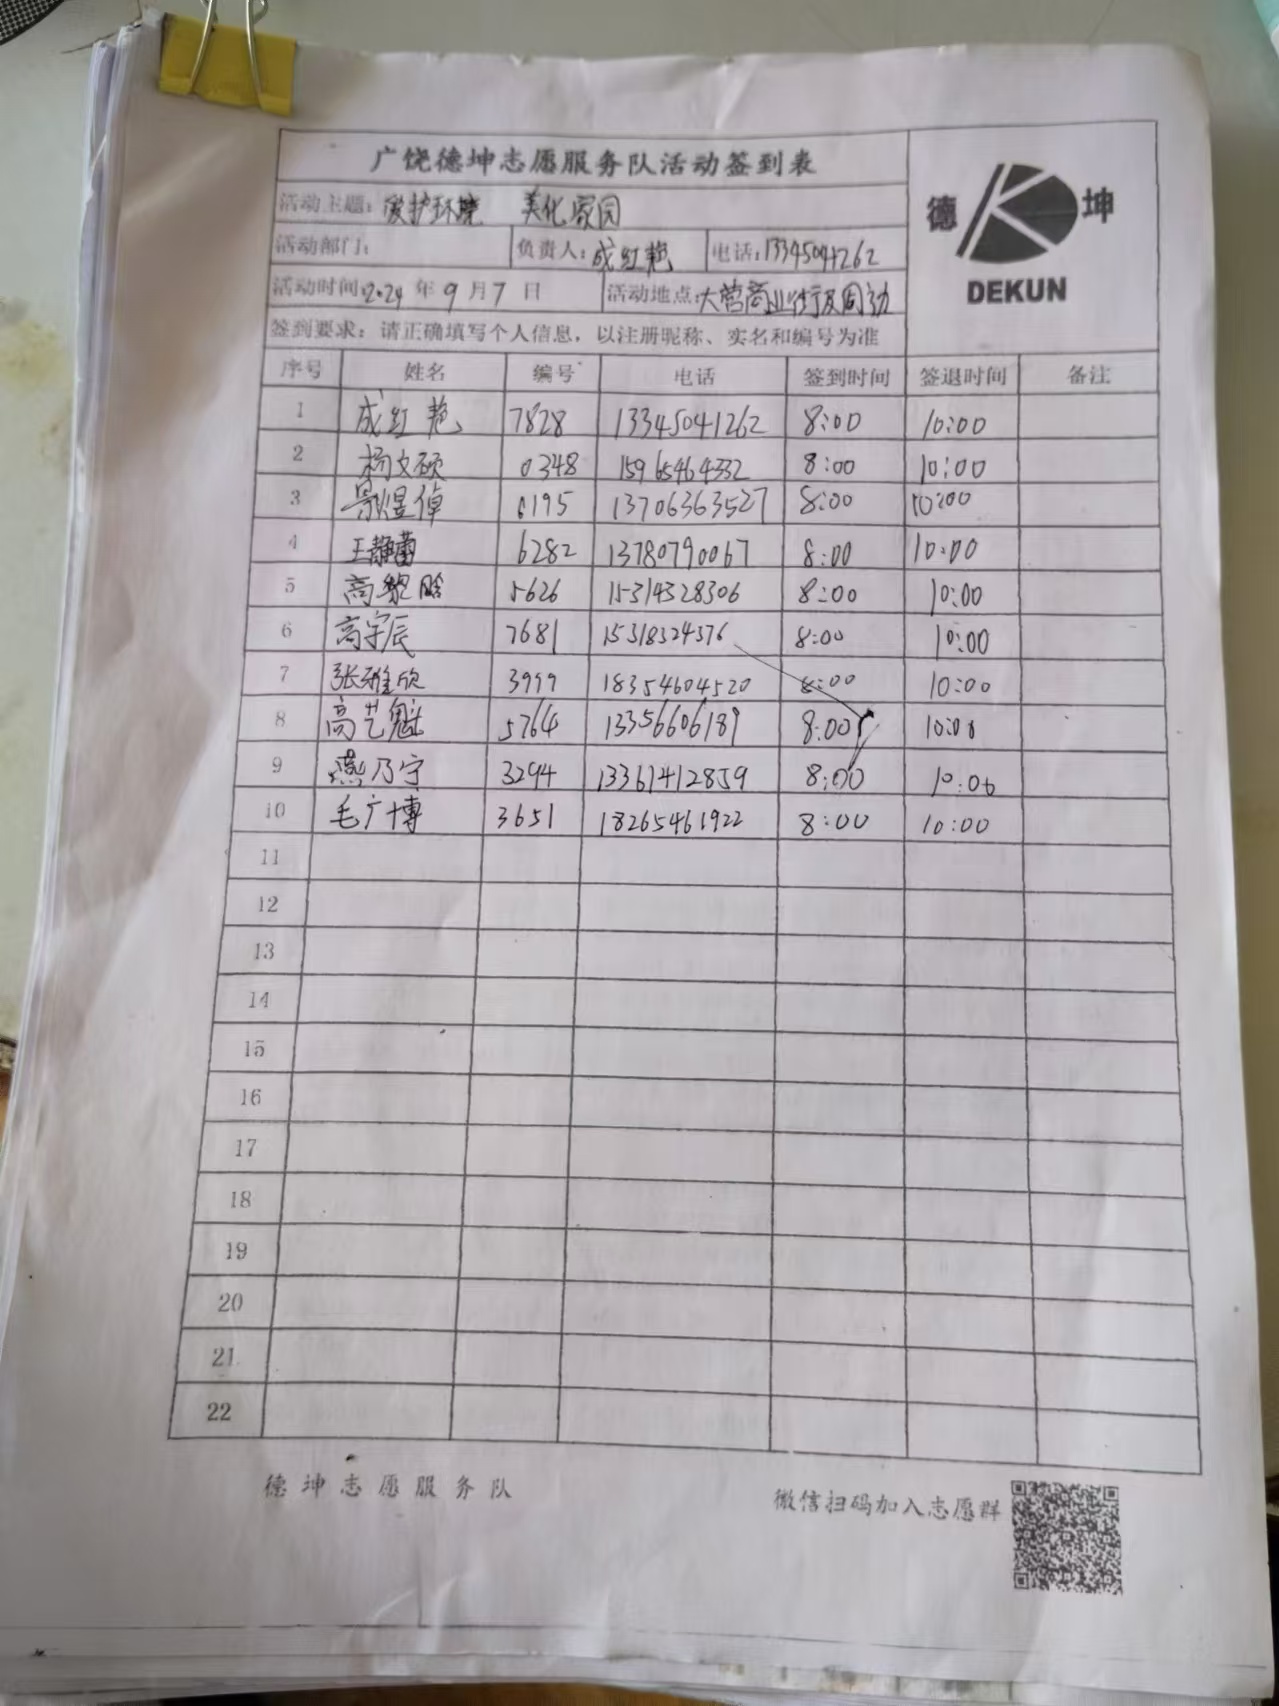 广饶德坤志愿服务队活动签到表
德 坤
DEKUN
活动主题：爱护环境 美化家园
活动部门： 负责人：成红艳 电话：13345041262
活动时间：2024 年 9 月 7 日 活动地点：大营商业街及周边
签到要求：请正确填写个人信息，以注册昵称、实名和编号为准
序号 姓名 编号 电话 签到时间 签退时间 备注
1 成红艳 7828 13345041262 8:00 10:00
2 杨文硕 0348 15965464332 8:00 10:00
3 煜倬 0195 13706363527 8:00 10:00
4 王静蕾 6282 13780790067 8:00 10:00
5 高黎晗 5626 15314328306 8:00 10:00
6 高宇辰 7681 15318324376 8:00 10:00
7 张雅欣 3999 18354604520 8:00 10:00
8 高艺魁 5764 13356606189 8:00 10:00
9 燕乃宁 3294 13361412859 8:00 10:00
10 毛广博 3651 18265461922 8:00 10:00
11
12
13
14
15
16
17
18
19
20
21
22
德坤志愿服务队
微信扫码加入志愿群